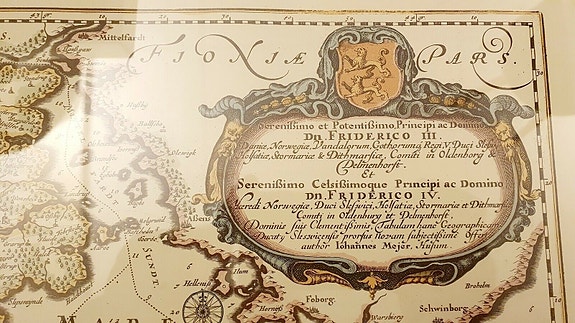 Mittelfardt
FIONIÆ PARS.
Serenißimo et Potentißimo Principi ac Domino
Dn. FRIDERICO III.
Daniæ, Norwegiæ, Vandalorum, Gothorumq Regi, Duci Slesv
Holsatiæ, Stormariæ & Dithmarsiæ, Comiti in Oldenborg &
Delmenhorst.
Et
Serenißimo Celsißimoque Principi ac Domino
Dn. FRIDERICO IV.
Hæredi Norwegiæ, Duci Slesvici, Holsatiæ, Stormariæ et Dithmar
Comiti in Oldenburg et Delmenhorst,
Dominis suis Clementißimis, Tabulam hanc Geographicam
Ducatus Slesvicensis prorsus novam subjectißimè Offert
author Iohannes Mejer, Husum.
Aßens
SUNDT.
Hellenis
Hum
Foborg.
Warsberg
Schwinborg
Broholm
MARE